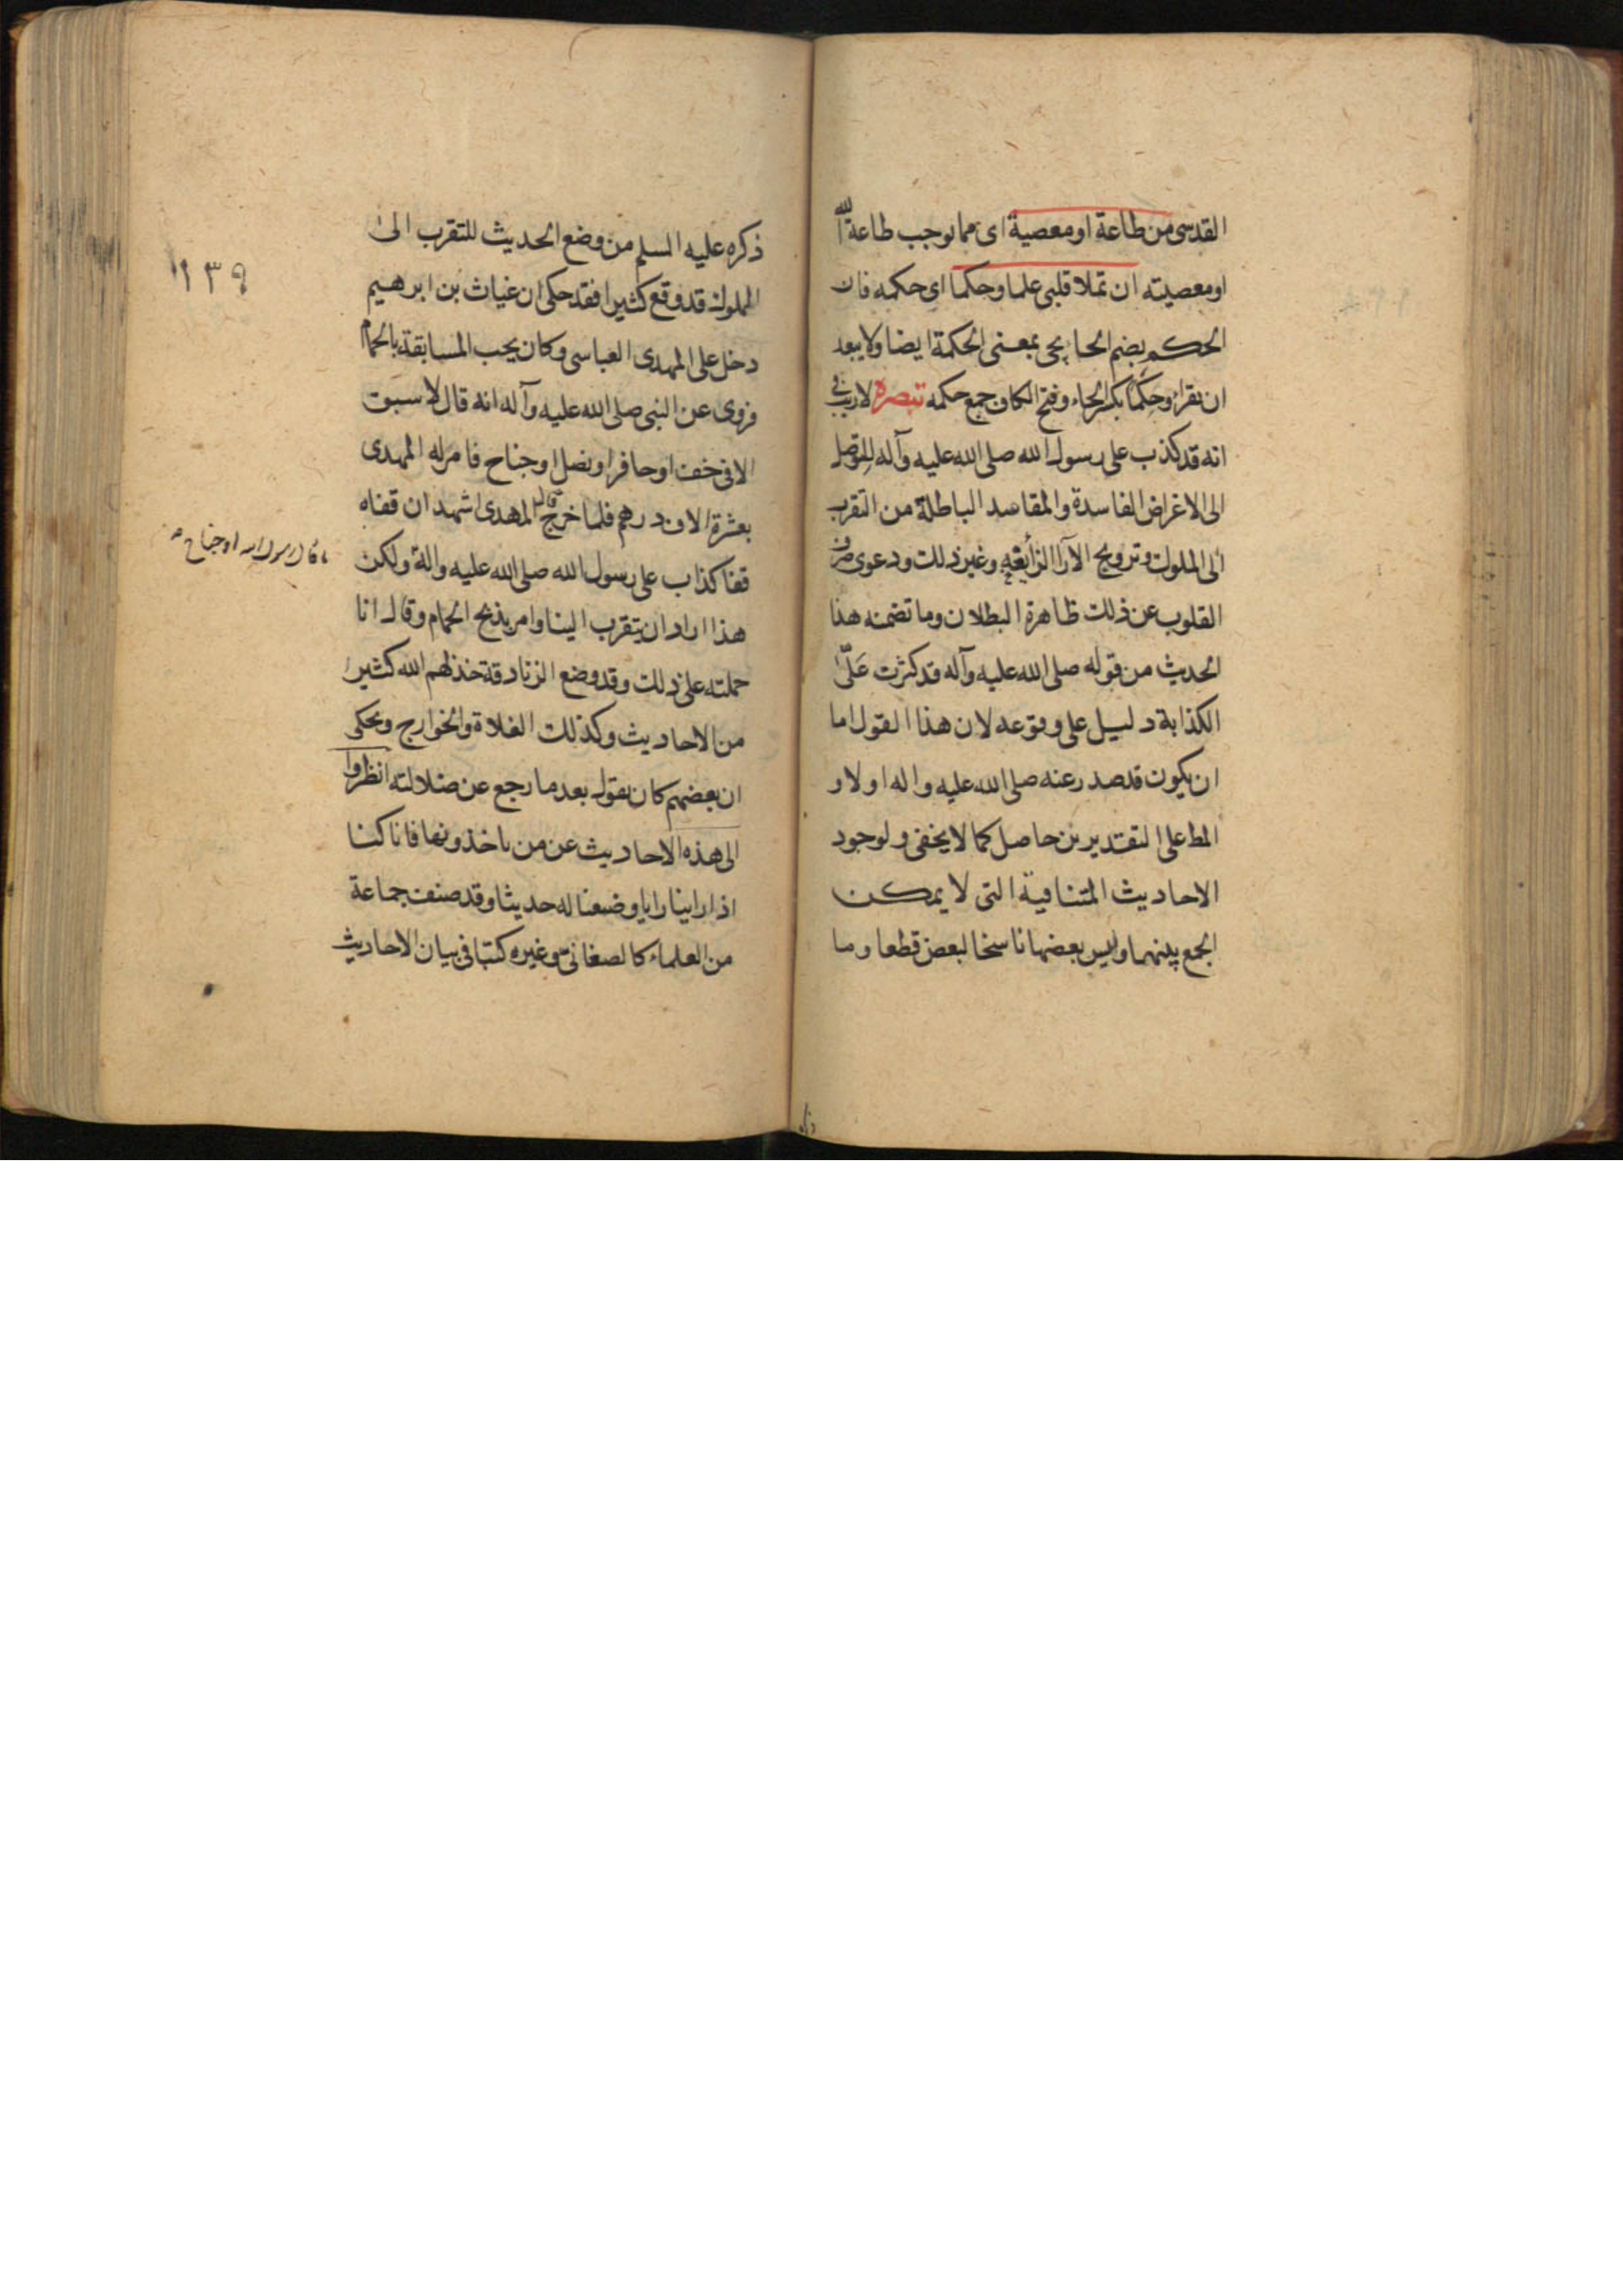 القدسى من طاعة او معصية اى مما يوجب طاعة الله
او معصيته ان تملا قلبى علما وحكما اى حكمه فان
الحكم بضم الحا يجى بمعنى الحكمة ايضا ولا يبعد
ان يقرا وحِكَمًا بكسر الحاء وفتح الكاف جمع حكمه تبصرة لا ريب فى
انه قد كذب على رسول الله صلى الله عليه وآله للتوصل
الى الاغراض الفاسدة والمقاصد الباطلة من التقرب
الى الملوك وترويج الآرا الزايغه وغير ذلك ودعوى صرف
القلوب عن ذلك ظاهرة البطلان وما تضمنه هذا
الحديث من قوله صلى الله عليه وآله قد كثرت عَلَىَّ
الكذابة دليل على وقوعه لان هذا القول اما
ان يكون قد صدر عنه صلى الله عليه واله اولا و
المط على التقديرين حاصل كما لا يخفى ولوجود
الاحاديث المتنافية التى لا يمكن
الجمع بينهما وليس بعضها ناسخا لبعض قطعا وما
ذكره
ذكره عليه السلم من وضع الحديث للتقرب الى
الملوك قد وقع كثيرا فقد حكى ان غياث بن ابرهيم
دخل على المهدى العباسى وكان يحب المسابقة بالحمام
فروى عن النبى صلى الله عليه وآله انه قال لا سبق
الا فى خف او حافر او نصل او جناح فامر له المهدى
بعشرة الاف درهم فلما خرج قال المهدى اشهد ان قفاه
قفا كذاب على رسول الله صلى الله عليه واله ولكن
هذا اراد ان يتقرب الينا وامر بذبح الحمام وقال انا
حملته على ذلك وقد وضع الزنادقة خذلهم الله كثيرا
من الاحاديث وكذلك الغلاة والخوارج ويحكى
ان بعضهم كان يقول بعد ما رجع عن ضلالته انظروا
الى هذه الاحاديث عن من ياخذونها فانا كنا
اذا راينا رايا وضعنا له حديثا وقد صنف جماعة
من العلماء كالصغانى وغيره كتبا فى بيان الاحاديث
١٣٩
ما قال رسول الله او جناح